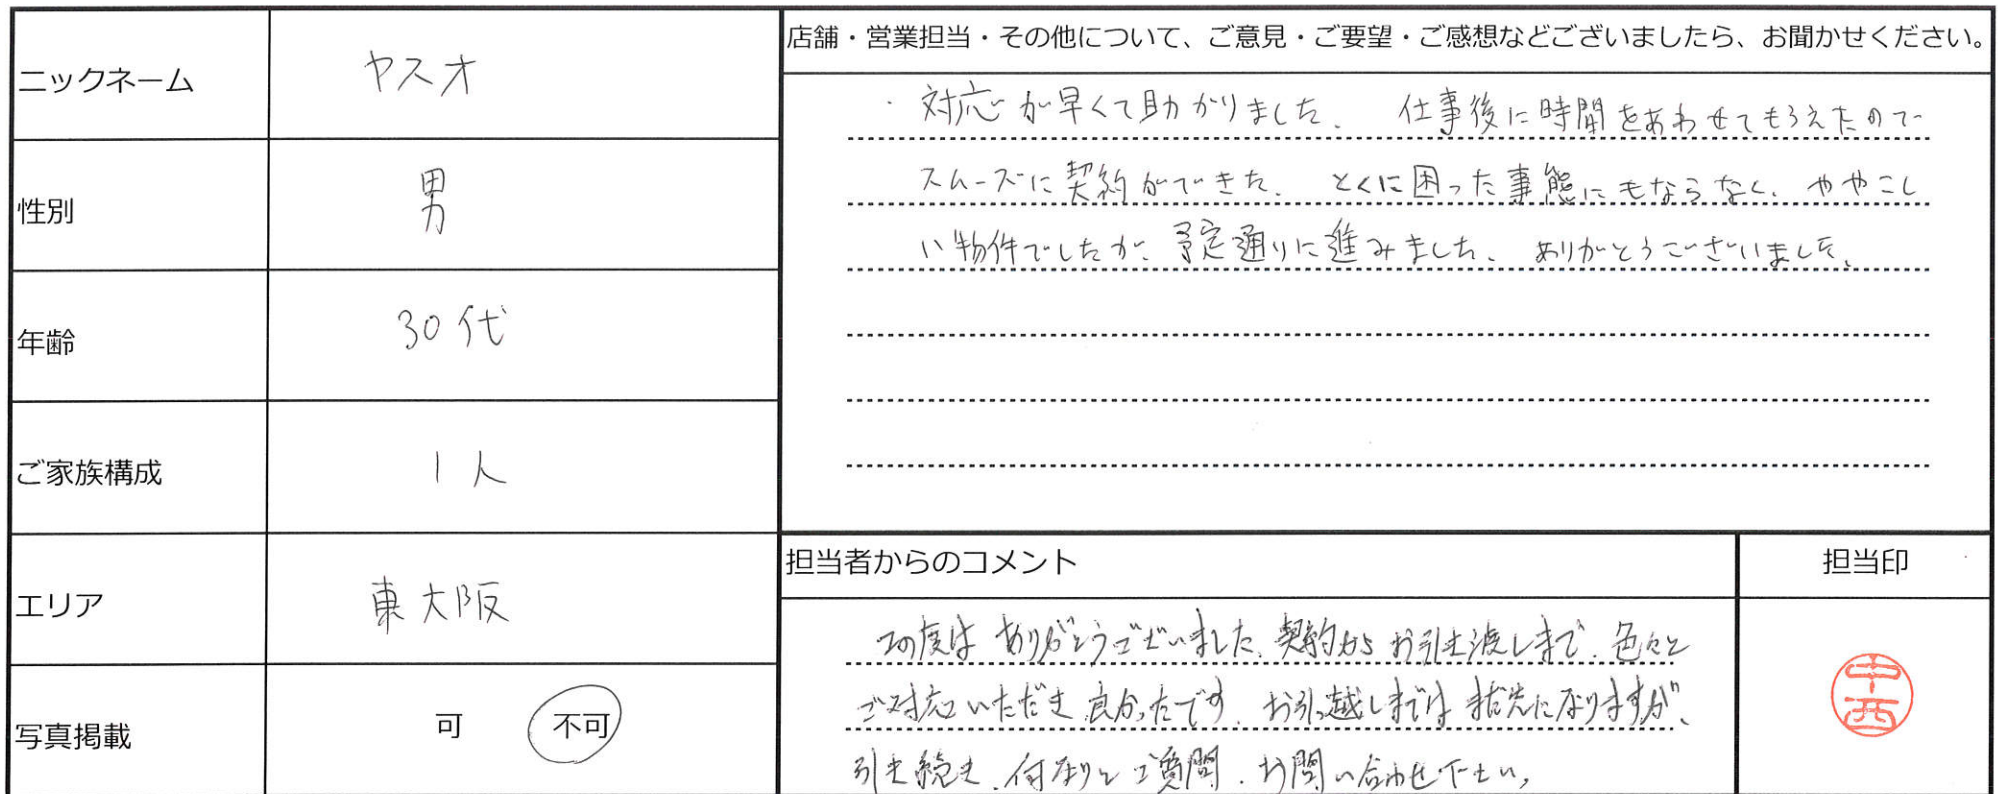 ニックネーム ヤスオ
性別 男
年齢 30代
ご家族構成 1人
エリア 東大阪
写真掲載 可 不可
店舗・営業担当・その他について、ご意見・ご要望・ご感想などございましたら、お聞かせください。
・対応が早くて助かりました。 仕事後に時間をあわせてもらえたので
スムーズに契約ができた。 とくに困った事態にもならなく、ややこし
い物件でしたが、予定通りに進みました。 ありがとうございました。
担当者からのコメント
この度はありがとうございました。契約からお引き渡しまで、色々と
ご対応いただき良かったです。お引越しまではまだ先になりますが、
引き続き、何なりとご質問、お問い合わせ下さい。
担当印
中西